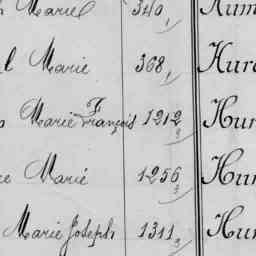 Mariel 340, Hum
Marie 368, Hura
Marie François 1212, Hun
Marie 1256, Hun
Marie Joseph 1311, Hun